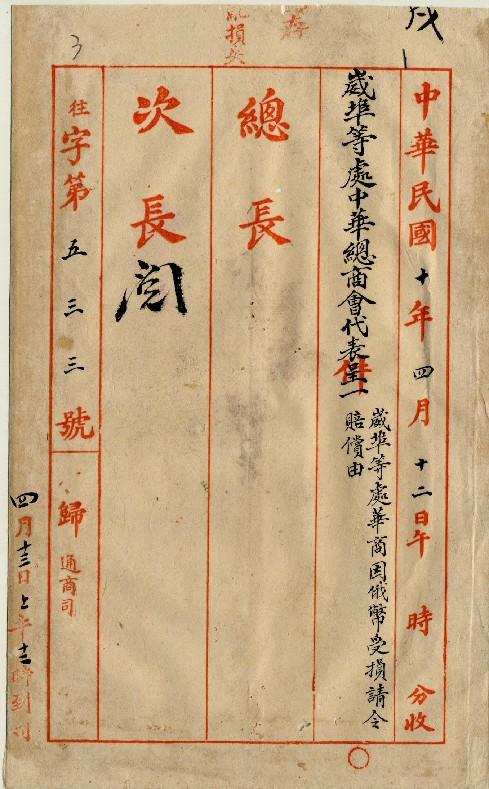 戌
存
亂損失
3
中華民國十年四月十二日午時分收
崴埠等處中華總商會代表呈一件
崴埠等處華商因俄幣受損請令
賠償由
總長
次長
閱
往字第五三三號
歸通商司
四月十三日上午十二時到司